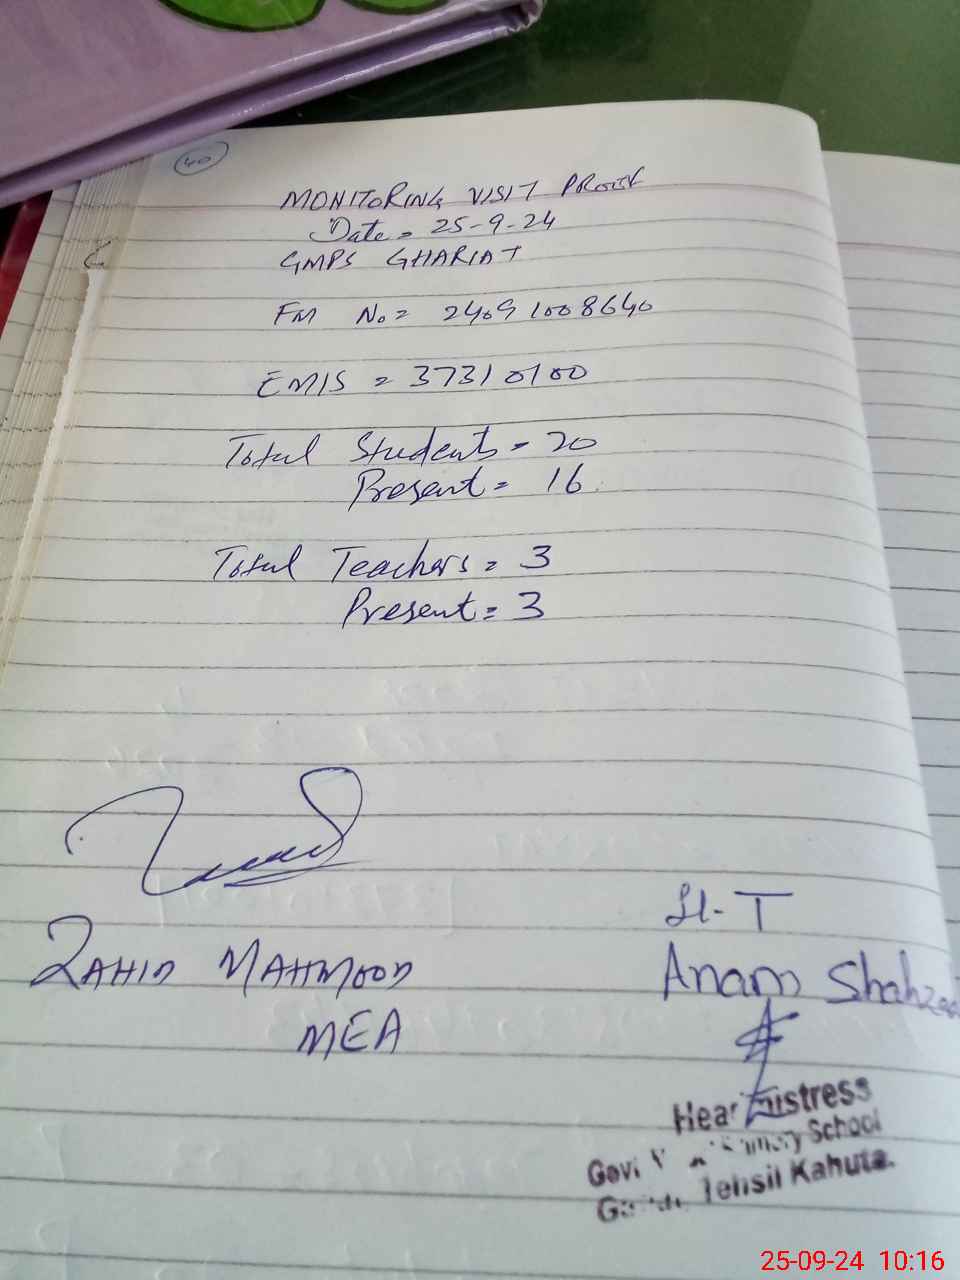 40
MONITORING VISIT PROOF
Date = 25-9-24
GMPS GHARIAT
FM No = 24091008640
EMIS = 37310100
Total Students = 20
Present = 16
Total Teachers = 3
Present = 3
ZAHID MAHMOOD
MEA
H-T
Anam
Headmistress
School
Tehsil Kahuta.
25-09-24 10:16